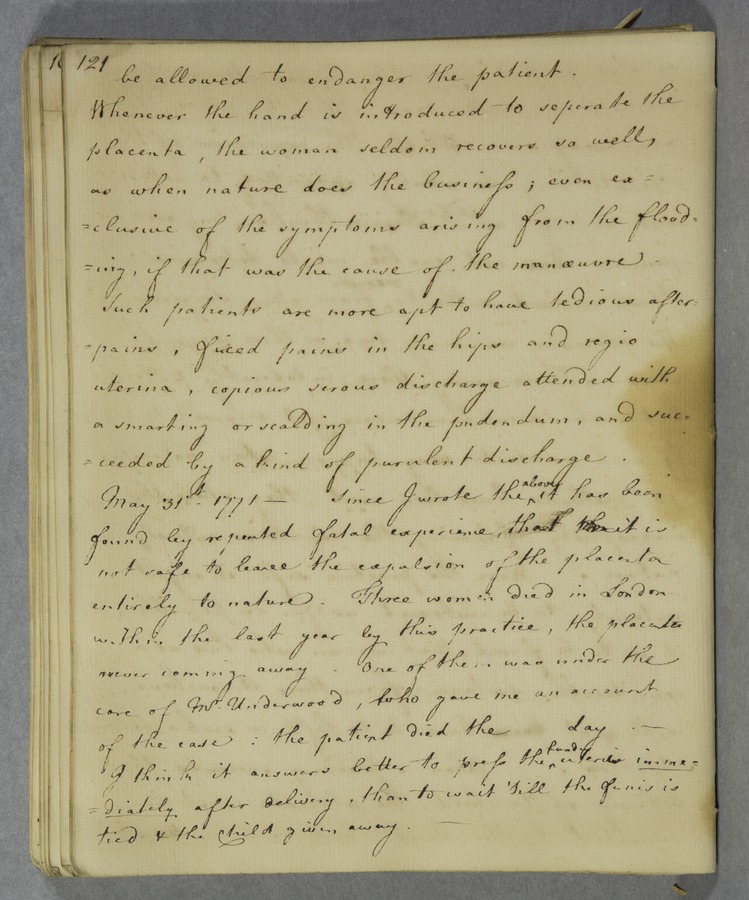 121
be allowed to endanger the patient.
Whenever the hand is introduced to seperate the
placenta, the woman seldom recovers so well,
as when nature does the business; even ex=
=clusive of the symptoms arising from the flood=
=ing, if that was the cause of the manœuvre.
Such patients are more apt to have tedious after=
=pains, fixed pains in the hips and regio
uterina, copious serous discharge attended with
a smarting or scalding in the pudendum, and suc=
=ceeded by a kind of purulent discharge.
May 31st. 1771 — Since I wrote the above it has been
found by repeated fatal experience, that it is
not safe to leave the expulsion of the placenta
entirely to nature. Three women died in London
within the last year by this practice, the placenta
never coming away. One of them was under the
care of Mr. Underwood, who gave me an account
of the case: the patient died the day. —
I think it answers better to press the fundus uteri imme=
=diately after delivery, than to wait 'till the funis is
tied & the child given away. —